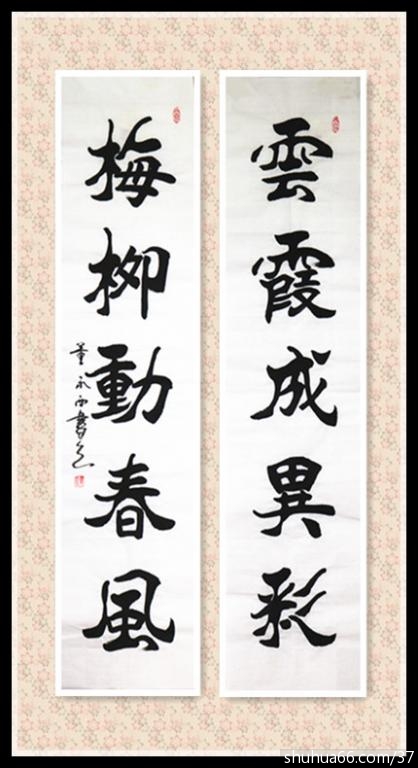 雲霞成異彩
梅柳動春風
董永西書
shuhua66.com/37